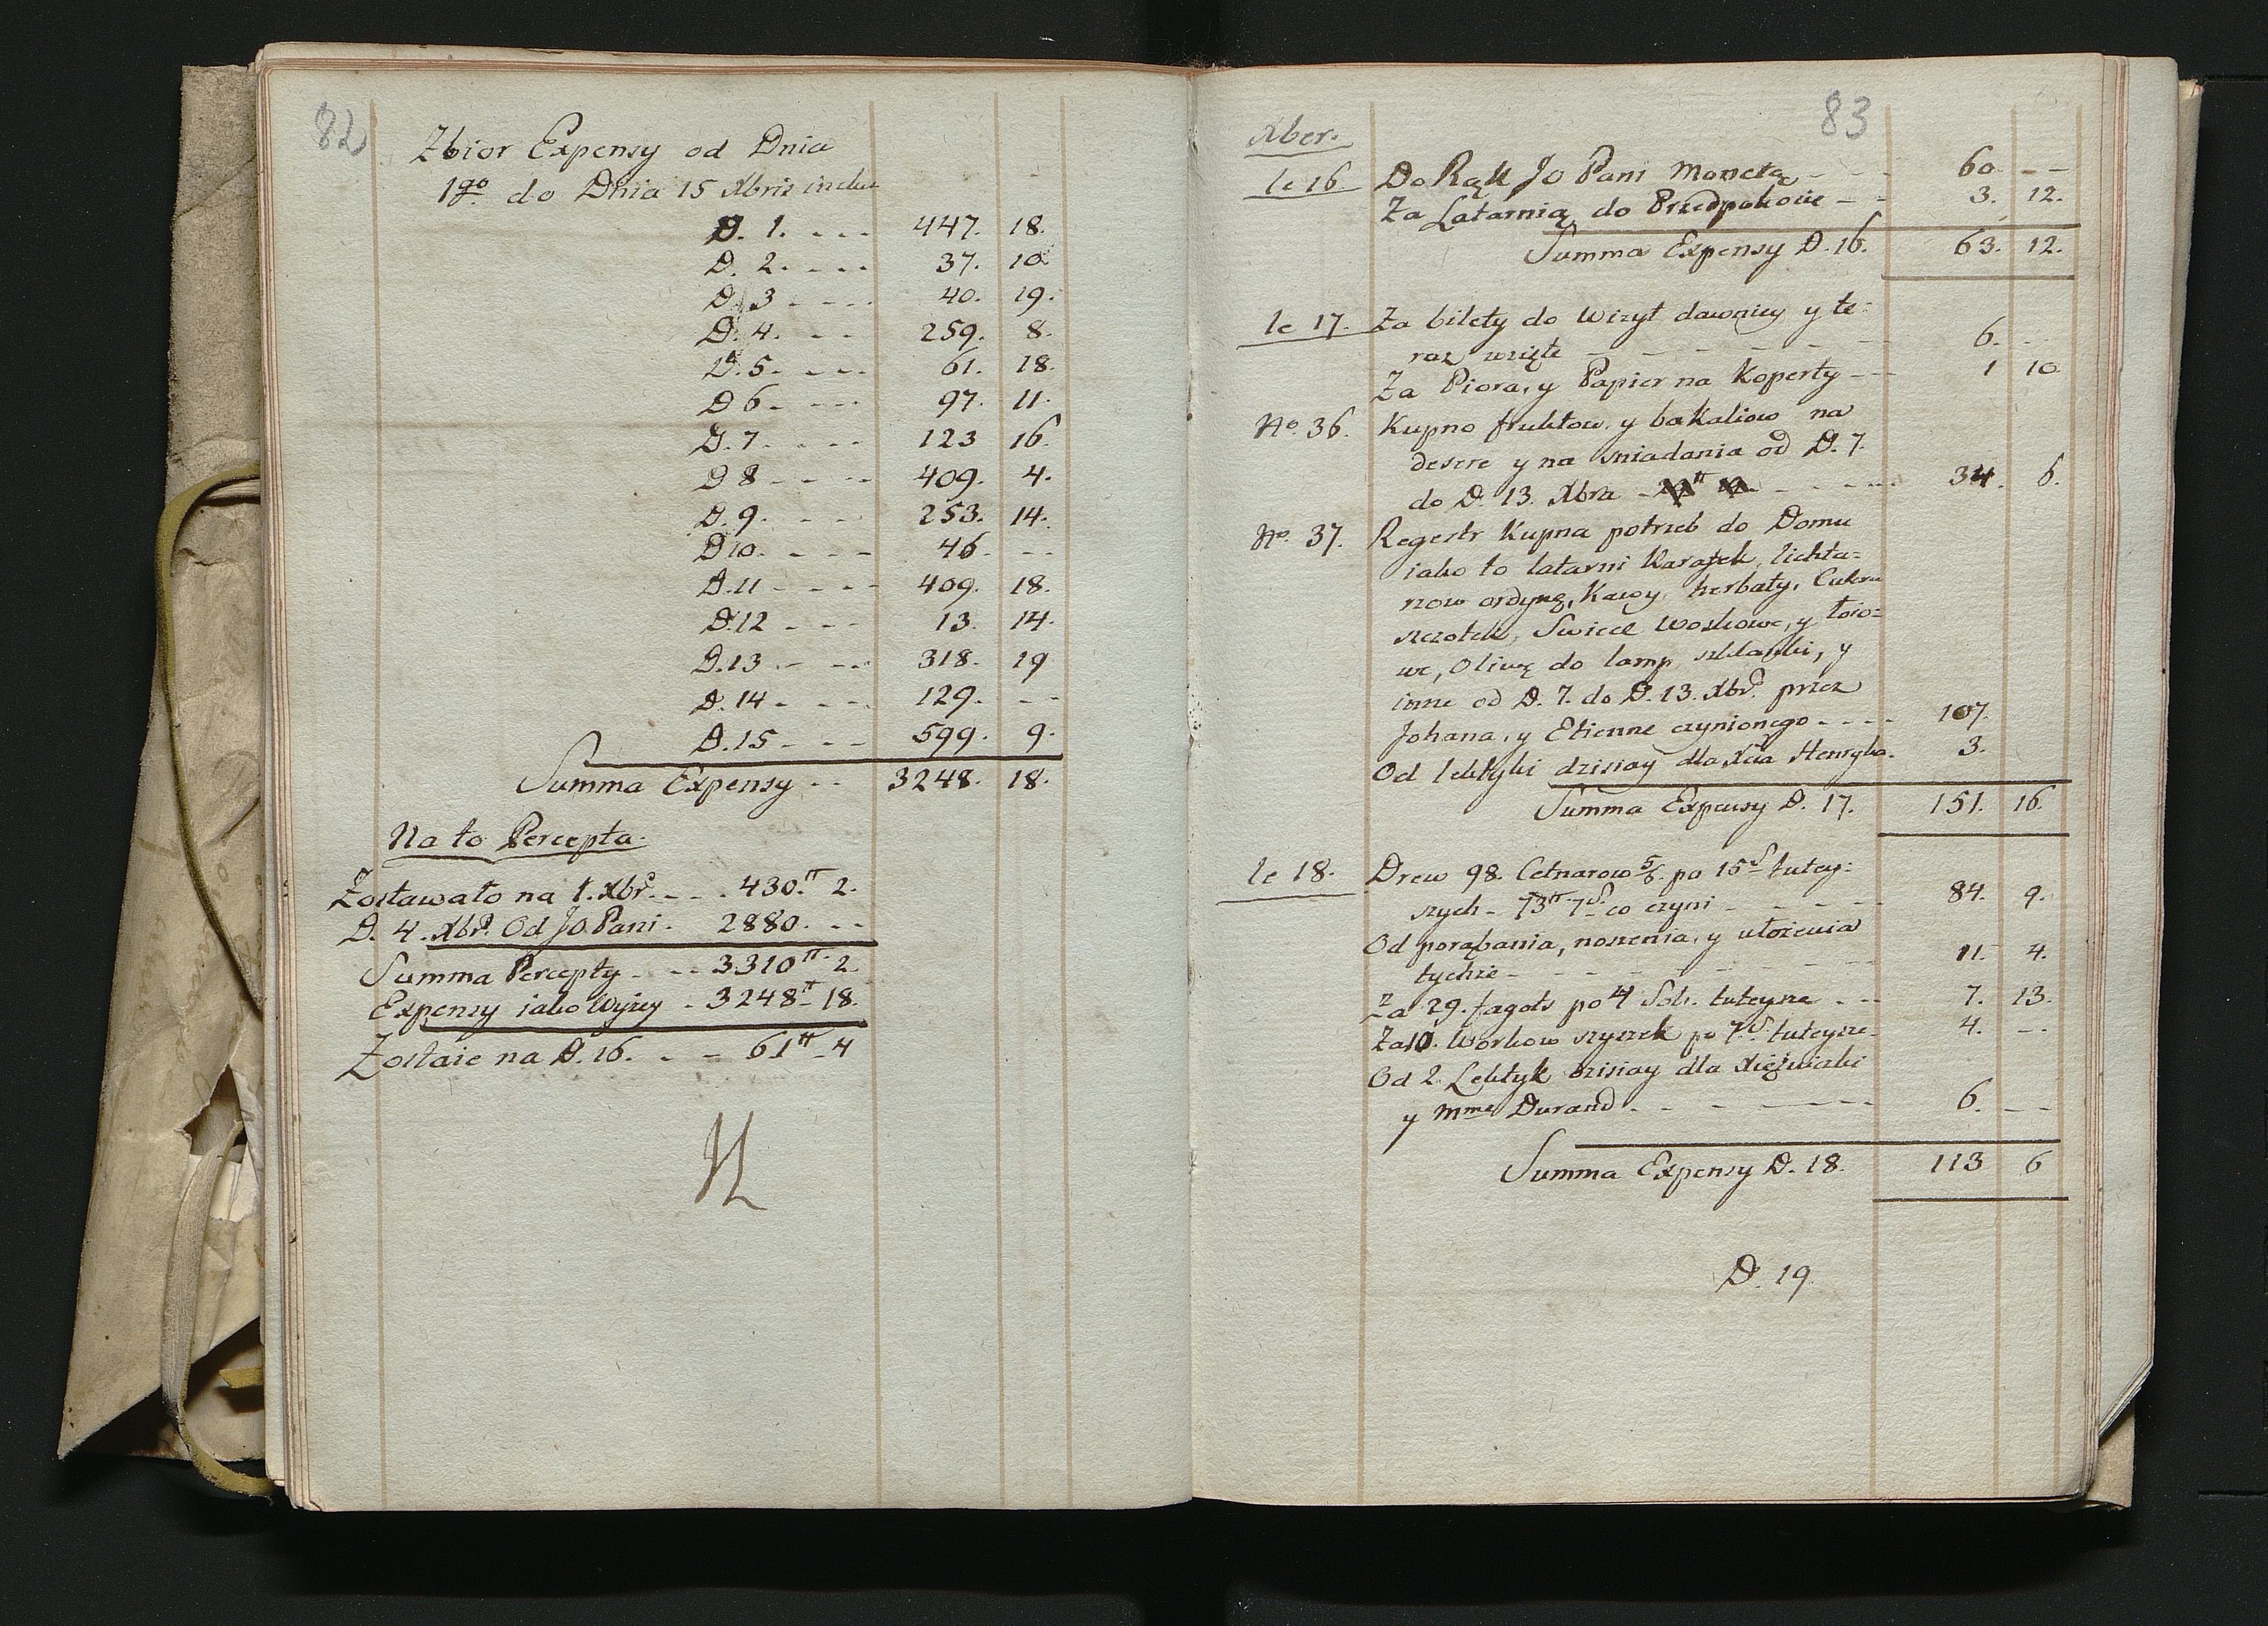 82
Zbior Expensy od Dnia
1go do Dnia 15 Xbris inclu
D. 1. - - - 447. 18.
D. 2. - - - 37. 10.
D. 3 - - - 40. 19.
D. 4. - - 259. 8.
D. 5. - - - 61. 18.
D 6. - - - 97. 11.
D. 7. - - - 123 16.
D 8 - - - - 409. 4.
D. 9. - - - 253. 14.
D 10. - - - 46. - -
D. 11 - - - - 409. 18.
D. 12 - - - 13. 14.
D. 13 - - - 318. 19
D. 14 - - - 129. - -
D. 15 - - - 599. 9.
Summa Expensy - - 3248. 18.
Na to Percepta.
Zostawało na 1. Xbr. - - . 430.tt 2.
D. 4. Xbr. Od JO Pani. 2880. - -
Summa Percepty - - - 3310tt. 2.
Expensy iako Wyżey - 3248tt - 18.
Zostaie na D. 16. - - 61tt - 4
83
Xber.
le 16 Do Rąk JO Pani Monetą - - - 60 - -
Za Latarnią do Przedpokoiu - - 3. 12.
Summa Expensy D. 16. 63. 12.
le 17. Za bilety do Wizyt dawniey y te=
raz wzięte - - - - - - - 6. - -
Za Piora, y Papier na Koperty - - 1 10
No. 36. Kupno fruktow y bakaliow na
desere y na sniadania od D. 7.
do D. 13. Xbra - - - - - 34. 6.
No. 37. Regestr Kupna potrzeb do Domu
iako to latarni Karafek, lichta=
rzow ordynę, Kawy, herbaty, Cukru
szczotek, Swiece Woskowe, y łoio=
we, Oliwę do lamp, szklanki, y
inne od D. 7. do D. 13. Xbr. przez
Johana, y Etienne czynionego - - - - 107.
Od lektyki dzisiay dla Xcia Henryka. 3.
Summa Expensy D. 17. 151. 16.
le 18. Drew 98. Cetnarow 5/6. po 15 S tutey=
szych - 73tt - 7 S. co czyni - - - - - 84. 9.
Od porąbania, noszenia, y ułożenia
tychże - - - - - - - - 11. 4.
Za 29. fagots po 4 Sols. tuteysze - - - 7. 13.
Za 10. Workow szyszek po 7 S. tuteysze - 4. - -
Od 2. Lektyk dzisiay dla Xiężniczki
y Mme Durand. - - - - - - 6. - -
Summa Expensy D. 18. 113 6
D. 19